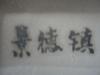 景德镇